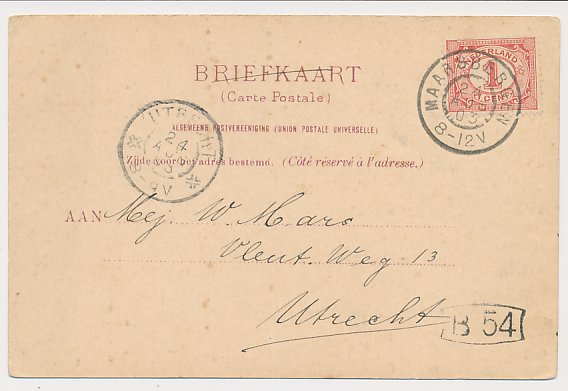 BRIEFKAART
(Carte Postale.)
ALGEMEENE POSTVEREENIGING (UNION POSTALE UNIVERSELLE)
Zijde voor het adres bestemd. (Côté réservé à l'adresse.)
NEDERLAND
1
CENT
MAARSBERGEN
24
03
8-12V
UTRECHT
24
8-9V
AAN Mej. W. Mars
Vleut. Weg 13
Utrecht
B 54